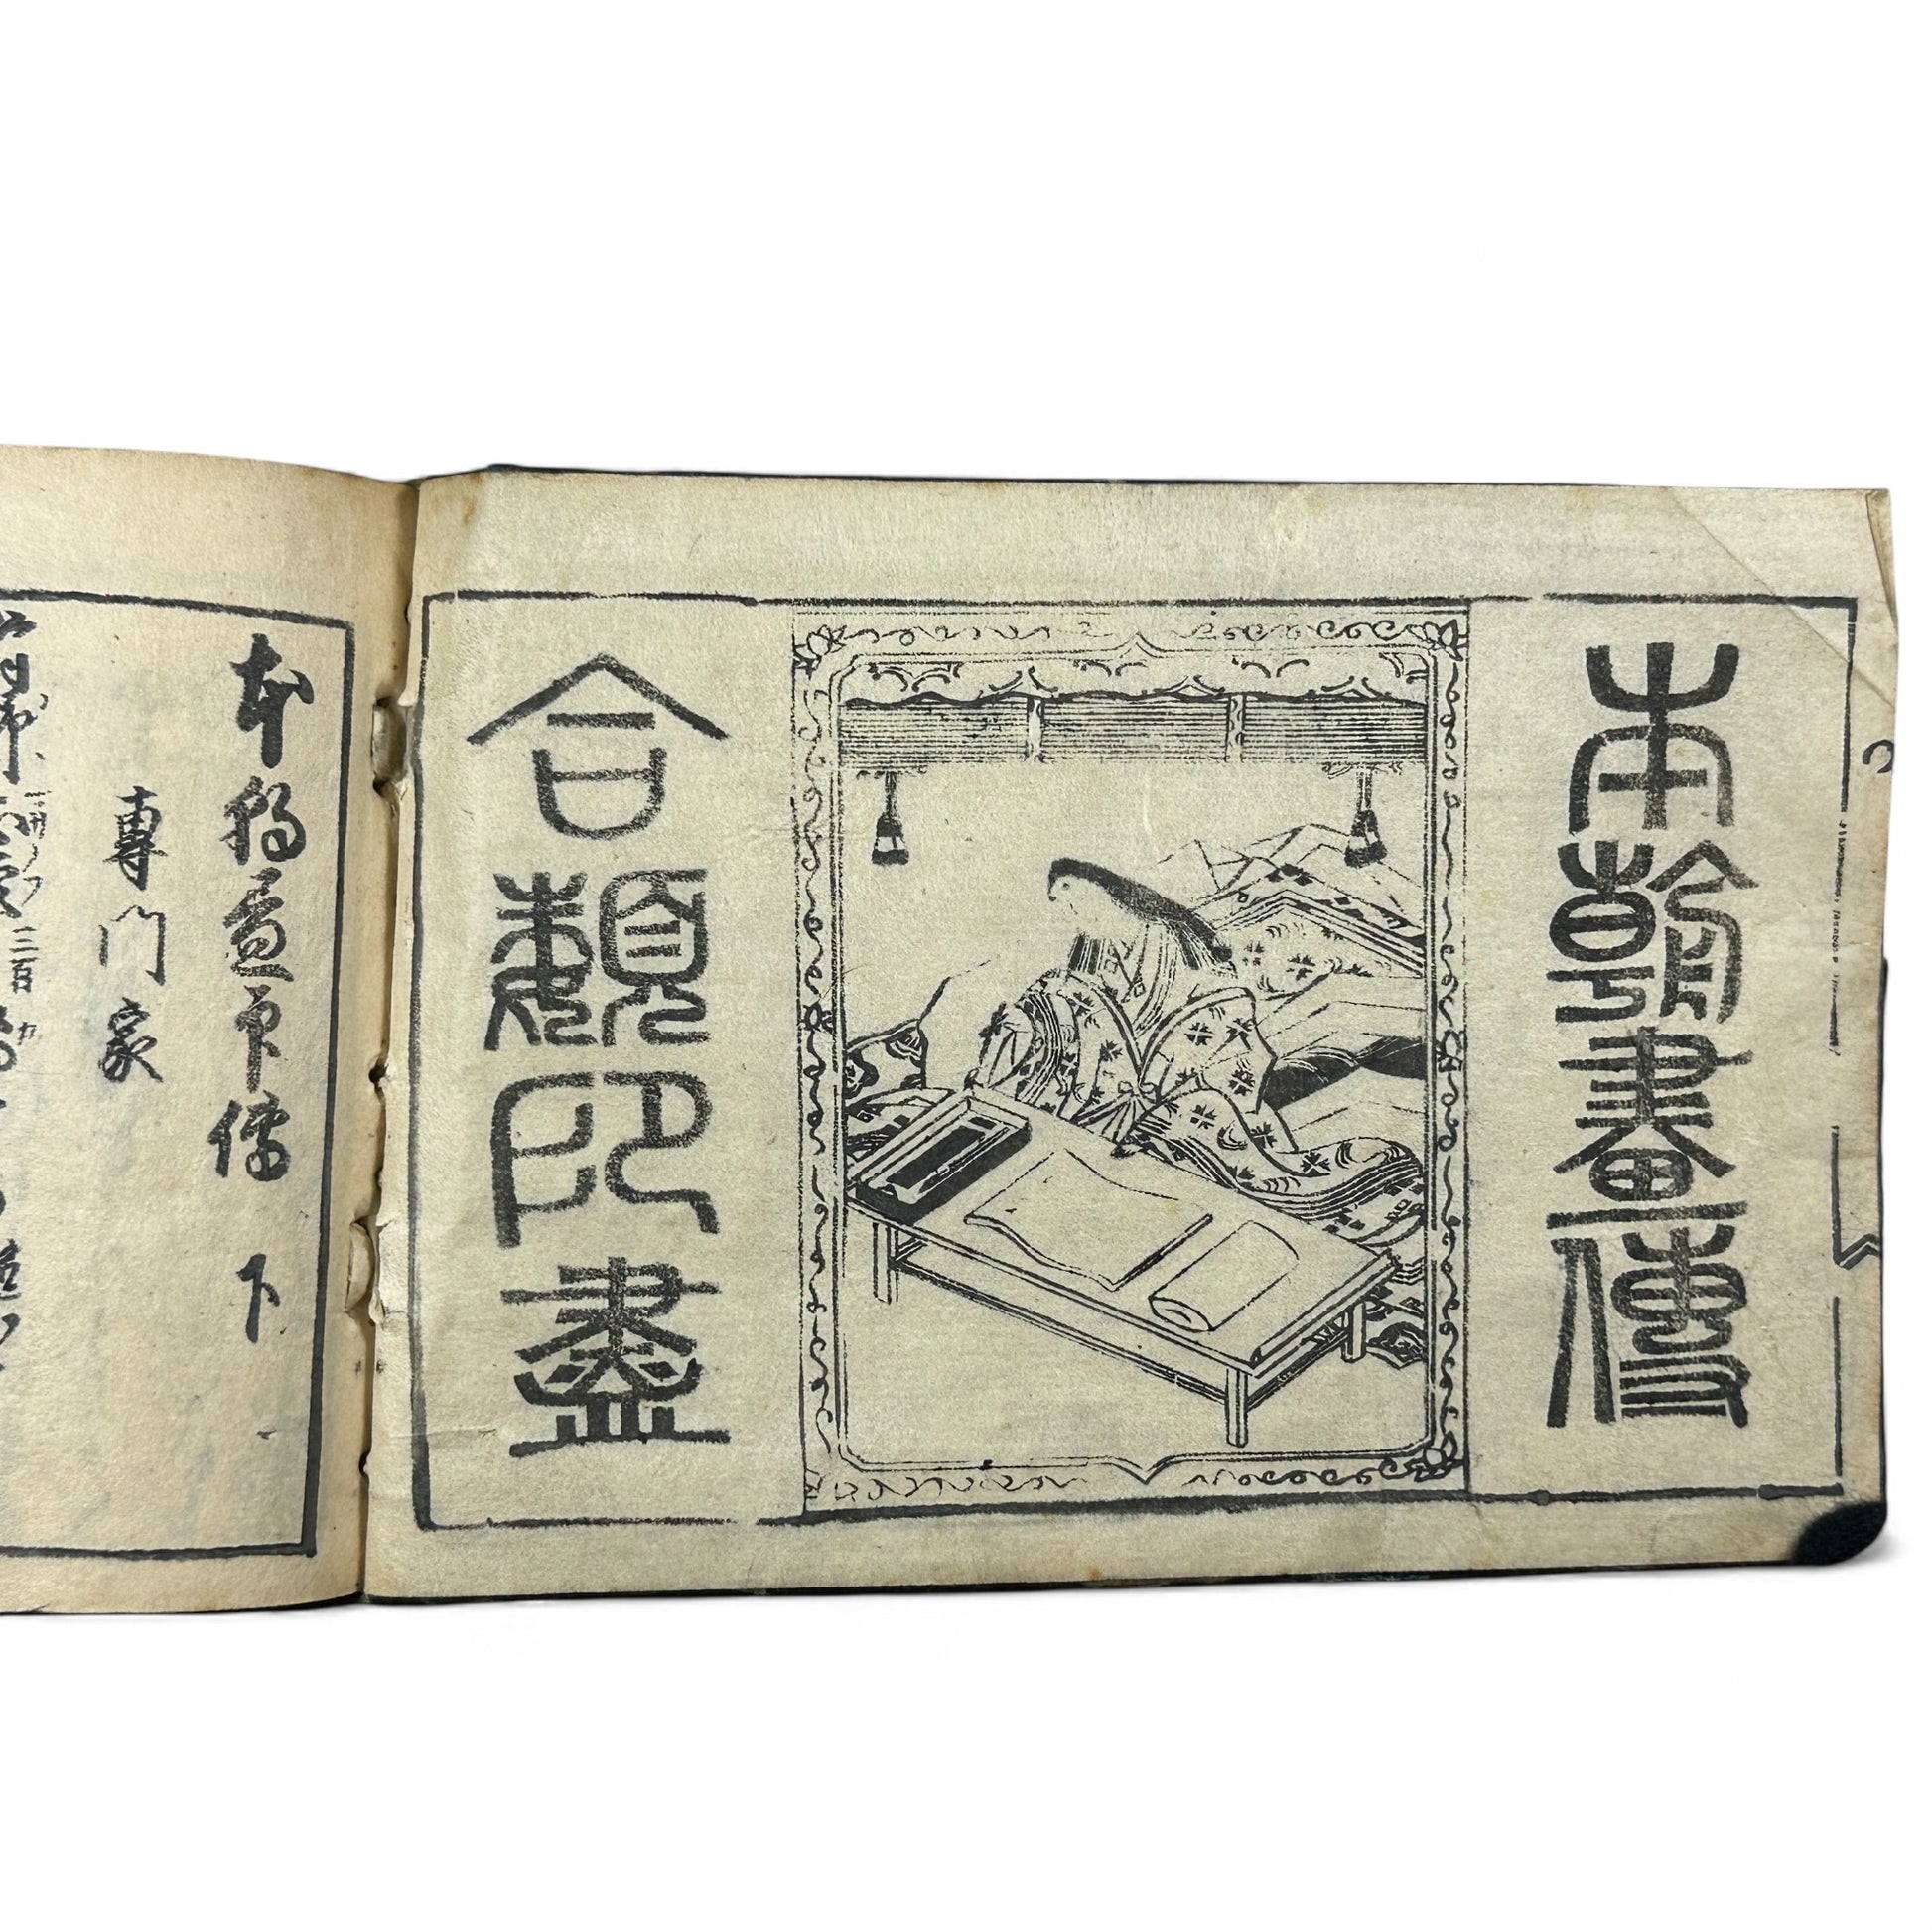 本朝畫傳
合類印盡
本朝畫印傳 下
專門家
三百